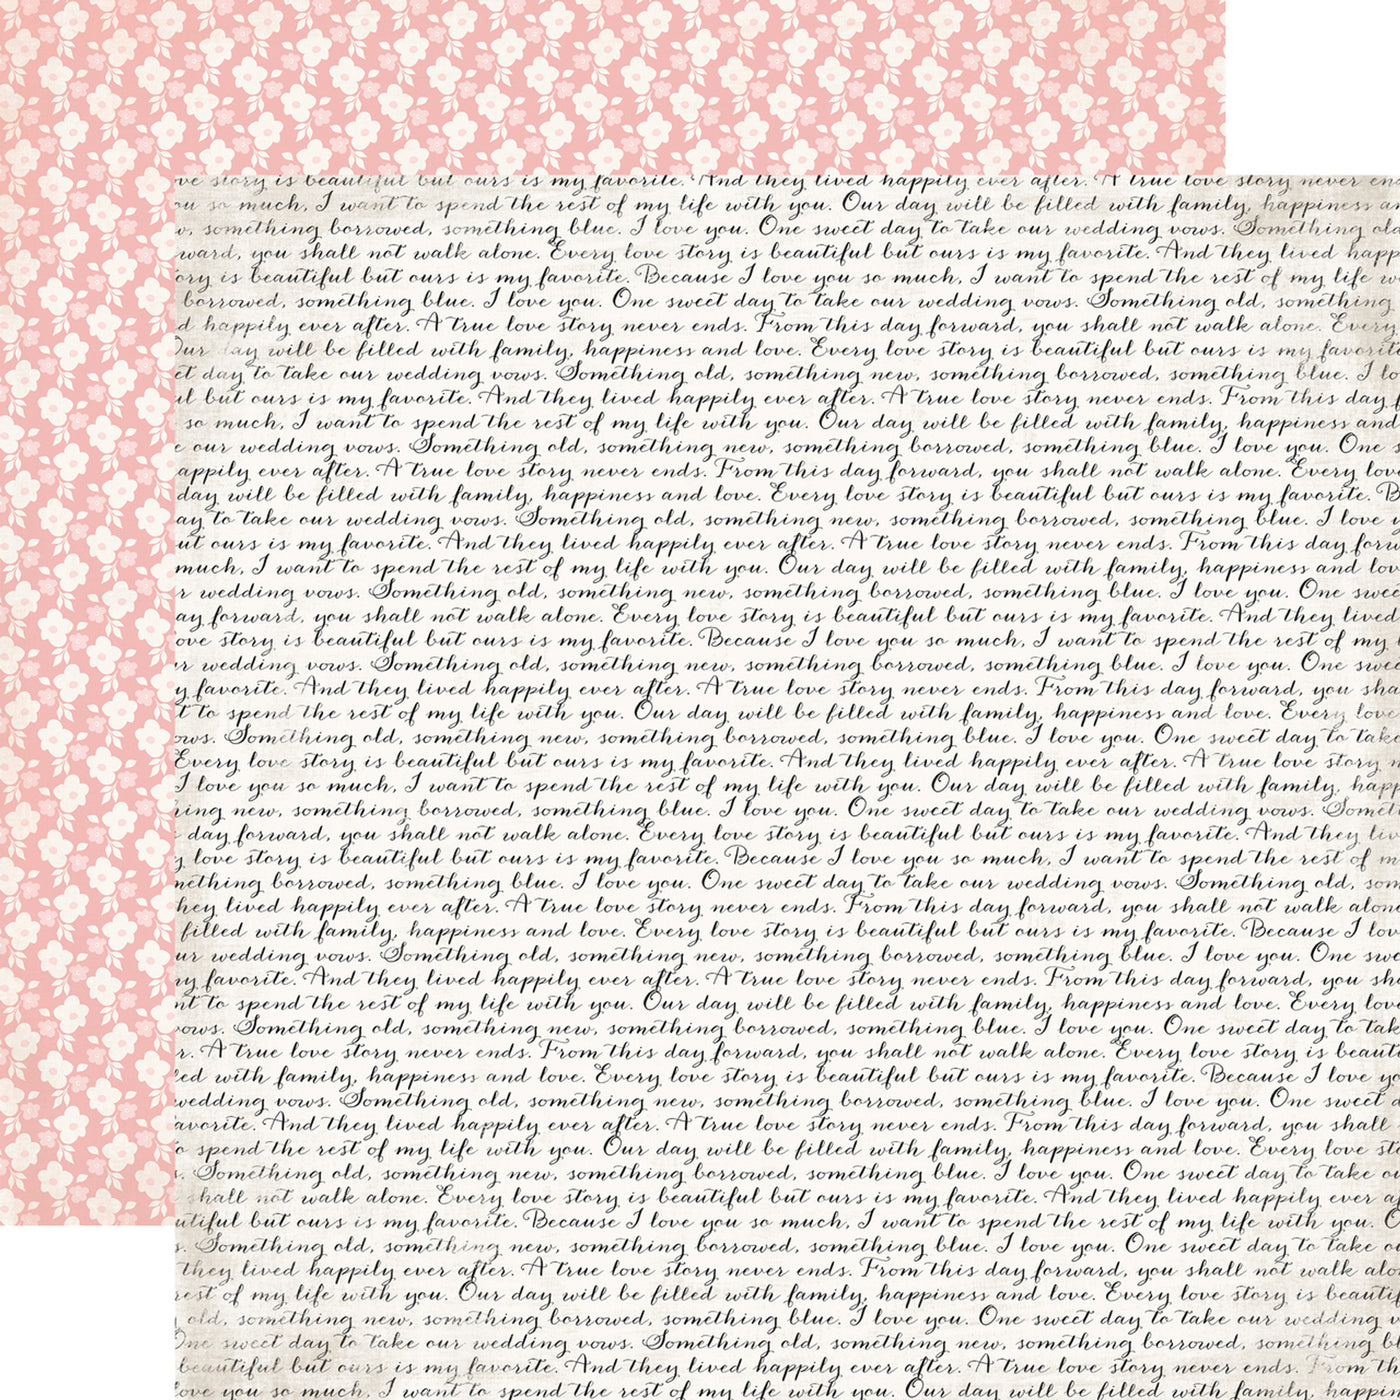 ve story is beautiful but ours is my favorite. And they lived happily ever after. A true love story never en
ou so much, I want to spend the rest of my life with you. Our day will be filled with family, happiness an
w, something borrowed, something blue. I love you. One sweet day to take our wedding vows. Something old
rward, you shall not walk alone. Every love story is beautiful but ours is my favorite. And they lived happ
ory is beautiful but ours is my favorite. Because I love you so much, I want to spend the rest of my life w
borrowed, something blue. I love you. One sweet day to take our wedding vows. Something old, something
d happily ever after. A true love story never ends. From this day forward, you shall not walk alone. Every
Our day will be filled with family, happiness and love. Every love story is beautiful but ours is my favorite
et day to take our wedding vows. Something old, something new, something borrowed, something blue. I lo
ul but ours is my favorite. And they lived happily ever after. A true love story never ends. From this day f
so much, I want to spend the rest of my life with you. Our day will be filled with family, happiness and
e our wedding vows. Something old, something new, something borrowed, something blue. I love you. One s
appily ever after. A true love story never ends. From this day forward, you shall not walk alone. Every lov
day will be filled with family, happiness and love. Every love story is beautiful but ours is my favorite. B
ay to take our wedding vows. Something old, something new, something borrowed, something blue. I love y
ut ours is my favorite. And they lived happily ever after. A true love story never ends. From this day forw
much, I want to spend the rest of my life with you. Our day will be filled with family, happiness and lov
r wedding vows. Something old, something new, something borrowed, something blue. I love you. One swee
ay forward, you shall not walk alone. Every love story is beautiful but ours is my favorite. And they lived
ove story is beautiful but ours is my favorite. Because I love you so much, I want to spend the rest of my l
r wedding vows. Something old, something new, something borrowed, something blue. I love you. One swee
y favorite. And they lived happily ever after. A true love story never ends. From this day forward, you sha
t to spend the rest of my life with you. Our day will be filled with family, happiness and love. Every love
ows. Something old, something new, something borrowed, something blue. I love you. One sweet day to take
Every love story is beautiful but ours is my favorite. And they lived happily ever after. A true love story n
I love you so much, I want to spend the rest of my life with you. Our day will be filled with family, happ
hing new, something borrowed, something blue. I love you. One sweet day to take our wedding vows. Somet
day forward, you shall not walk alone. Every love story is beautiful but ours is my favorite. And they liv
y love story is beautiful but ours is my favorite. Because I love you so much, I want to spend the rest of m
mething borrowed, something blue. I love you. One sweet day to take our wedding vows. Something old, som
hey lived happily ever after. A true love story never ends. From this day forward, you shall not walk alone
filled with family, happiness and love. Every love story is beautiful but ours is my favorite. Because I lov
ur wedding vows. Something old, something new, something borrowed, something blue. I love you. One swe
my favorite. And they lived happily ever after. A true love story never ends. From this day forward, you sh
nt to spend the rest of my life with you. Our day will be filled with family, happiness and love. Every lov
vows. Something old, something new, something borrowed, something blue. I love you. One sweet day to tak
r. A true love story never ends. From this day forward, you shall not walk alone. Every love story is beauti
led with family, happiness and love. Every love story is beautiful but ours is my favorite. Because I love yo
wedding vows. Something old, something new, something borrowed, something blue. I love you. One sweet d
avorite. And they lived happily ever after. A true love story never ends. From this day forward, you shall
o spend the rest of my life with you. Our day will be filled with family, happiness and love. Every love sto
s. Something old, something new, something borrowed, something blue. I love you. One sweet day to take o
shall not walk alone. Every love story is beautiful but ours is my favorite. And they lived happily ever a
utiful but ours is my favorite. Because I love you so much, I want to spend the rest of my life with you. O
s. Something old, something new, something borrowed, something blue. I love you. One sweet day to take o
they lived happily ever after. A true love story never ends. From this day forward, you shall not walk alo
rest of my life with you. Our day will be filled with family, happiness and love. Every love story is beautif
old, something new, something borrowed, something blue. I love you. One sweet day to take our wedding v
One sweet day to take our wedding vows. Something old, something new, something borrowed, something bl
beautiful but ours is my favorite. And they lived happily ever after. A true love story never ends. From th
love you so much, I want to spend the rest of my life with you. Our day will be filled with family, happine